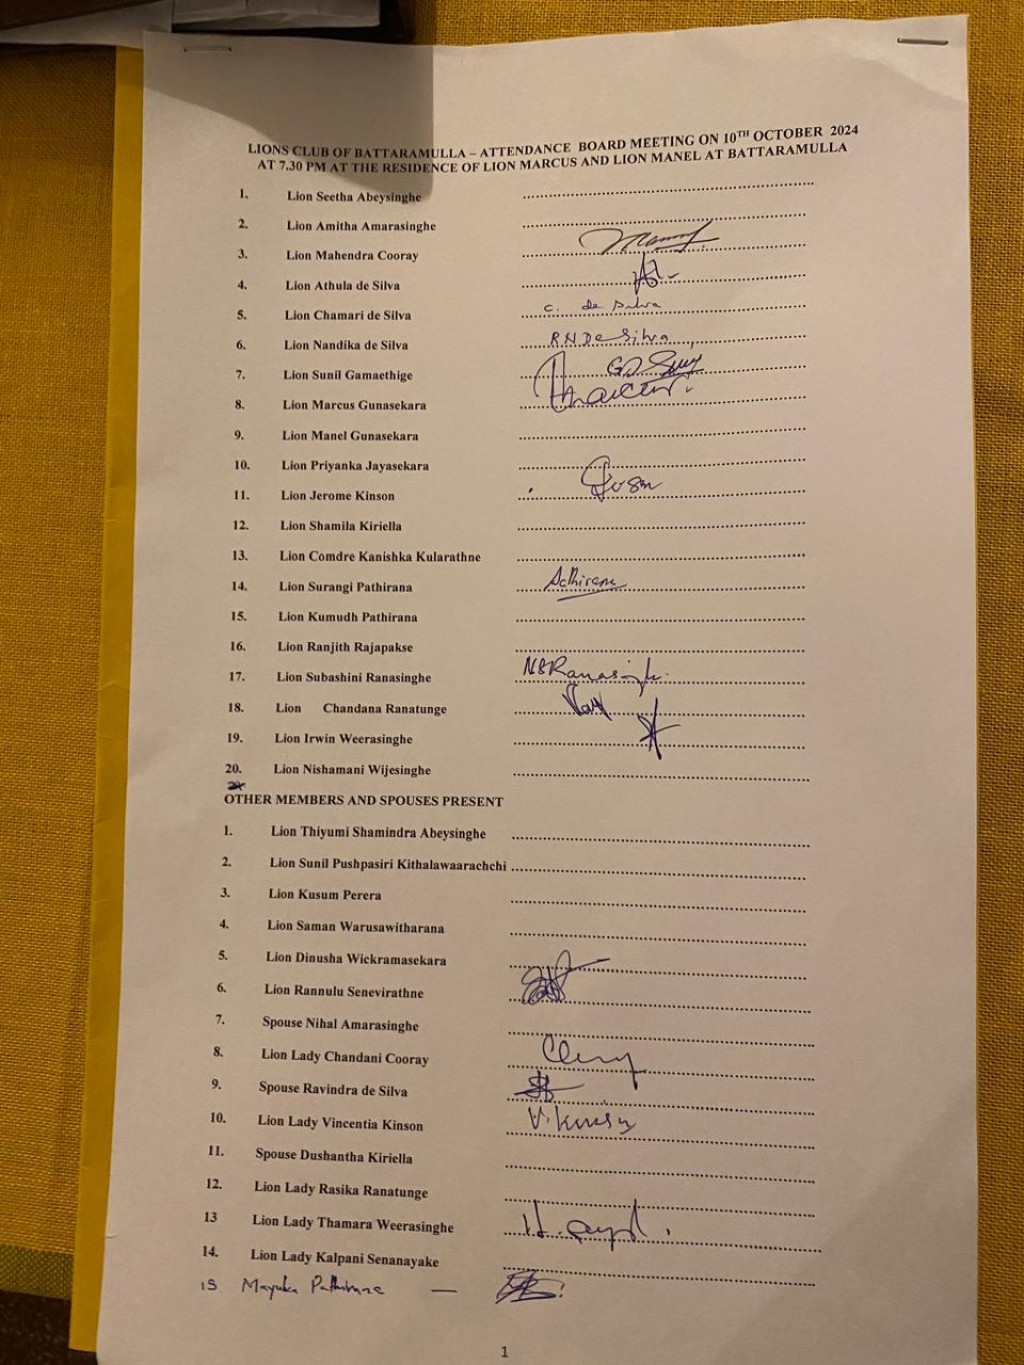 LIONS CLUB OF BATTARAMULLA – ATTENDANCE BOARD MEETING ON 10TH OCTOBER 2024
AT 7.30 PM AT THE RESIDENCE OF LION MARCUS AND LION MANEL AT BATTARAMULLA
1. Lion Seetha Abeysinghe
2. Lion Amitha Amarasinghe
3. Lion Mahendra Cooray
4. Lion Athula de Silva
5. Lion Chamari de Silva C. de Silva
6. Lion Nandika de Silva R N De Silva
7. Lion Sunil Gamaethige
8. Lion Marcus Gunasekara
9. Lion Manel Gunasekara
10. Lion Priyanka Jayasekara
11. Lion Jerome Kinson
12. Lion Shamila Kiriella
13. Lion Comdre Kanishka Kularathne
14. Lion Surangi Pathirana
15. Lion Kumudh Pathirana
16. Lion Ranjith Rajapakse
17. Lion Subashini Ranasinghe
18. Lion Chandana Ranatunge
19. Lion Irwin Weerasinghe
20. Lion Nishamani Wijesinghe
OTHER MEMBERS AND SPOUSES PRESENT
1. Lion Thiyumi Shamindra Abeysinghe
2. Lion Sunil Pushpasiri Kithalawaarachchi
3. Lion Kusum Perera
4. Lion Saman Warusawitharana
5. Lion Dinusha Wickramasekara
6. Lion Rannulu Senevirathne
7. Spouse Nihal Amarasinghe
8. Lion Lady Chandani Cooray
9. Spouse Ravindra de Silva
10. Lion Lady Vincentia Kinson
11. Spouse Dushantha Kiriella
12. Lion Lady Rasika Ranatunge
13 Lion Lady Thamara Weerasinghe
14. Lion Lady Kalpani Senanayake
15 Mayuka Pathirana —
1